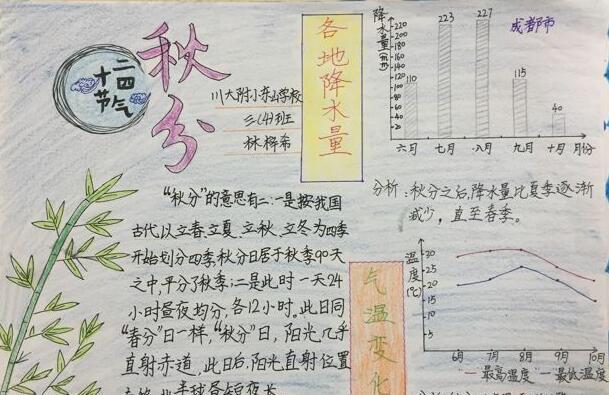 二四
十节气
秋分
川大附小东山学校
三(4)班
林桦希
各地降水量
降水量(mm)
220
200
180
160
140
120
100
80
60
40
20
110
223
227
115
40
成都市
六月 七月 八月 九月 十月 月份
分析:秋分之后,降水量比夏季逐渐
减少,直至春季。
"秋分"的意思有二:一是按我国
古代以立春、立夏、立秋、立冬为四季
开始划分四季,秋分日居于秋季90天
之中,平分了秋季;二是此时一天24
小时昼夜均分,各12小时,此日同
"春分"日一样,"秋分"日,阳光几乎
直射赤道,此日后,阳光直射位置
半球昼短夜长
气温变化
温度(℃)
30
25
20
15
6月 7月 8月 9月 10月
最高温度 最低温度